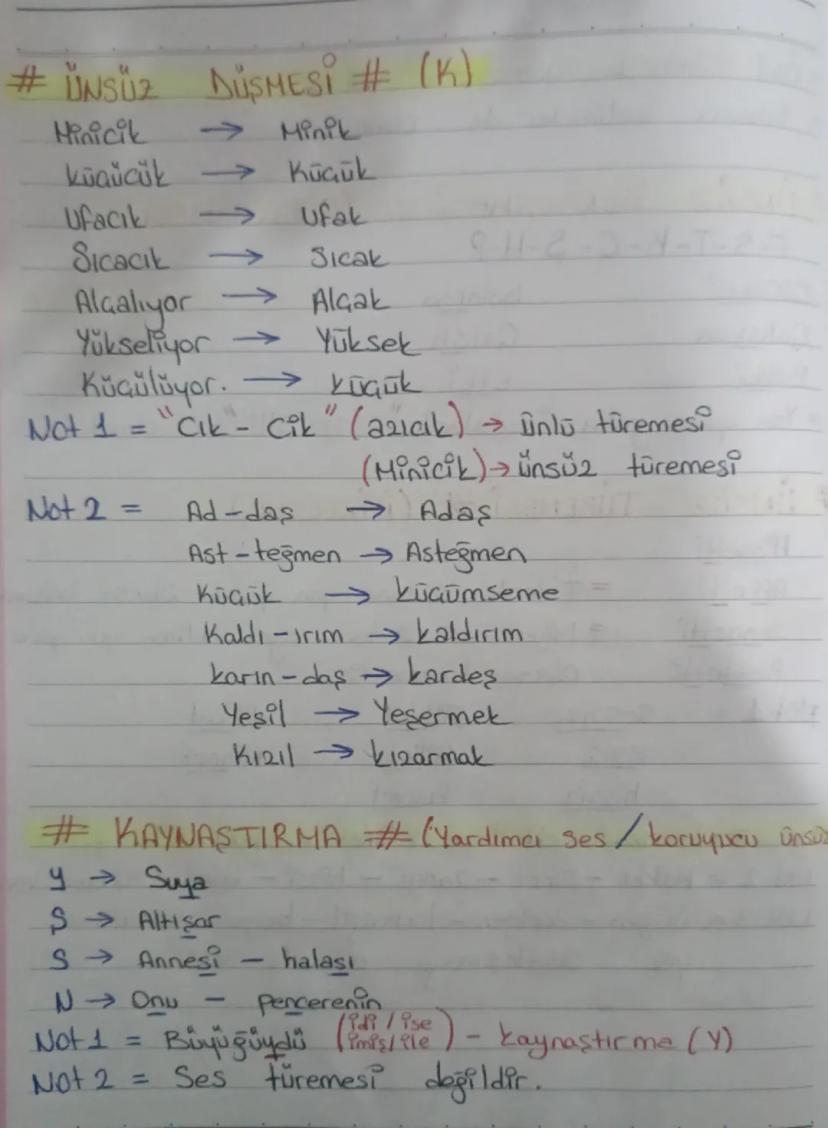 # ÜNSÜZ DÜŞMESİ # (K)
Minicik → Minik
küçücük → Küçük
Ufacık → Ufak
Sıcacık → Sıcak
Alçalıyor → Alçak
Yükseliyor → Yüksek
Küçülüyor. → küçük
Not 1 = "Cık" - Cik" (azıcık) → ünlü türemesi
(Minicik) → ünsüz türemesi
Not 2 = Ad-daş → Adaş
Ast-teğmen → Asteğmen
Küçük → küçümseme
Kaldı-ırım → kaldırım
karın-daş → kardeş
Yeşil → Yeşermek
Kızıl → kızarmak
# KAYNAŞTIRMA # (Yardımcı ses / koruyucu ünsüz
Y → Suya
Ş → Altışar
S → Annesi - halası
N → Onu - pencerenin
Not 1 = Büyüğüydü (idi / ise imiş / ile) - kaynaştırma (Y)
Not 2 = Ses türemesi değildir.